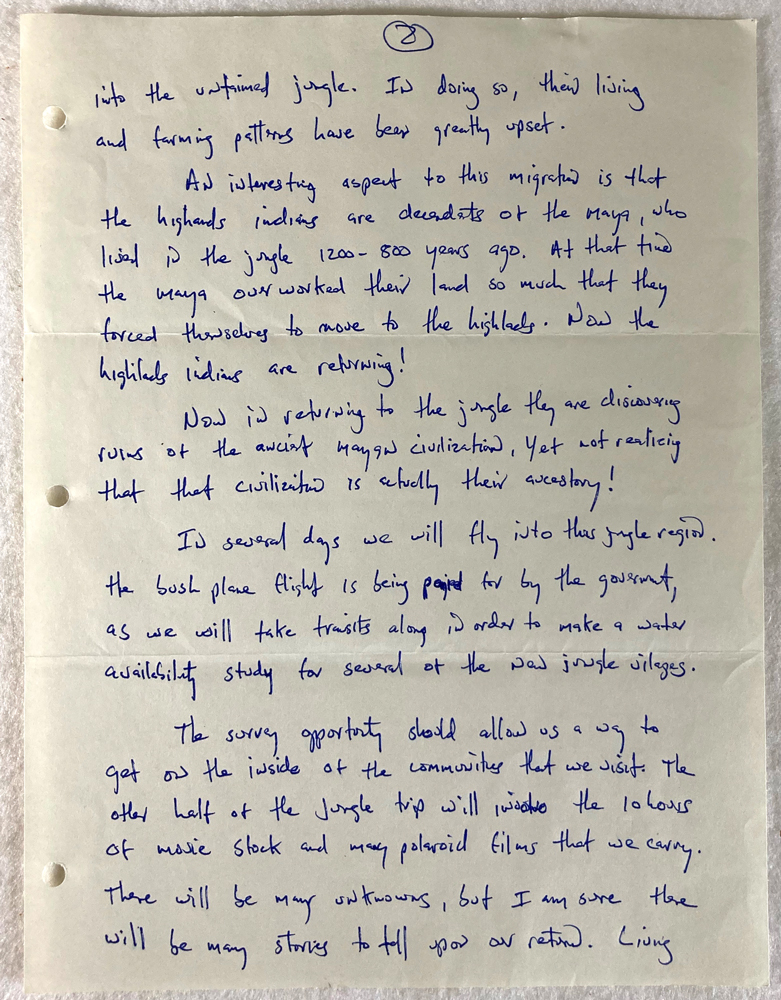 8
into the untaimed jungle. In doing so, their living
and farming patterns have been greatly upset.
An interesting aspect to this migration is that
the highands indians are decendats of the Maya, who
lived in the jungle 1200-800 years ago. At that time
the maya overworked their land so much that they
forced themselves to move to the highlads. Now the
highlads indians are returning!
Now in returning to the jungle they are discovering
ruins of the ancient mayan civilization, yet not realizing
that that civilization is actually their ancestory!
In several days we will fly into this jungle region.
the bush plane flight is being paid for by the government,
as we will take transits along in order to make a water
availability study for several of the new jungle vilages.
The survey opportunity should allow us a way to
get on the inside of the communities that we visit. The
other half of the jungle trip will involve the 10 hours
of movie stock and many polaroid films that we carry.
There will be many unknowns, but I am sure there
will be many stories to tell upon our return. Living